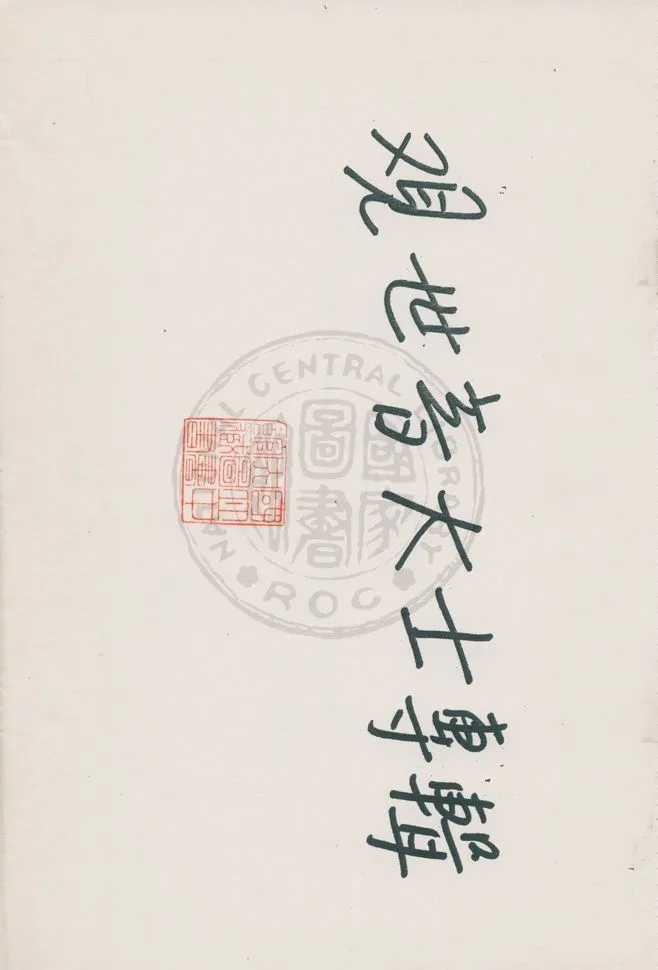 覌世音大士專輯
NATIONAL CENTRAL LIBRARY
ROC
國家圖書館